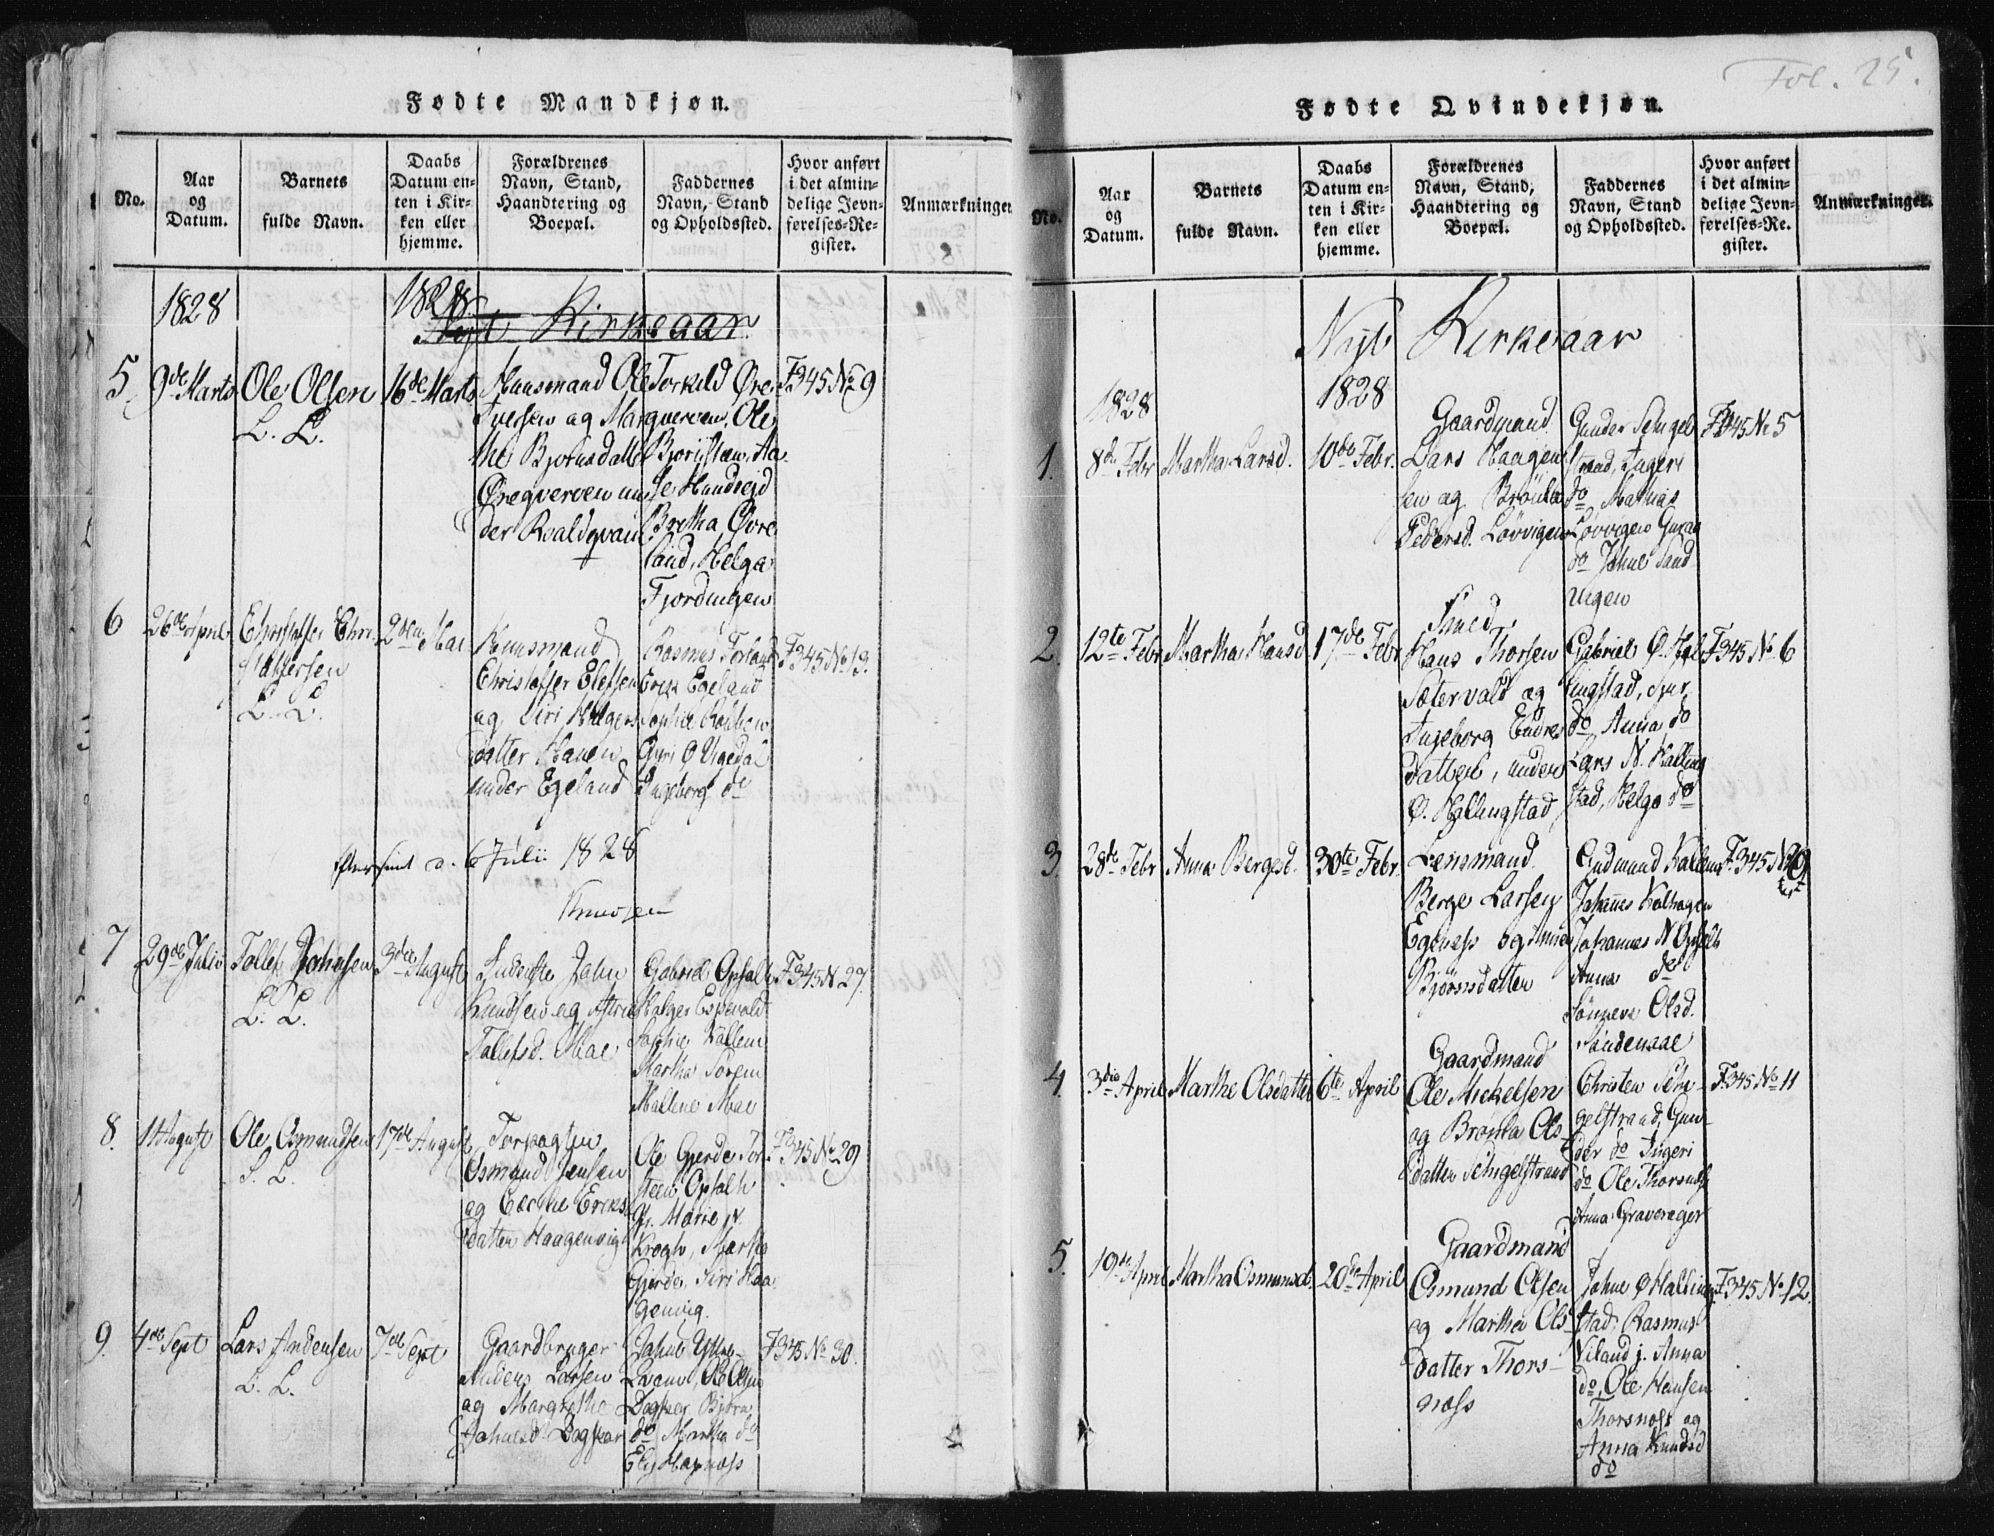 Fødte Mandkjøn.
No.
Aar
og
Datum.
Barnets
fulde Navn.
Daabs
Datum en-
ten i Kir-
ken eller
hjemme.
Forældrenes
Navn, Stand,
Haandtering og
Boepæl.
Faddernes
Navn, Stand
og Opholdssted.
Hvor anført
i det almin-
delige Jevn-
førelses-Re-
gister.
Anmærkninger
1828
1828.
Nyt Kirkeaar
5.
9de Marts
Ole Olsen
L. L.
16de Marts
Huusmand Ole
Iversen og Mar
the Bjørnsdatter
Øregverven un
der Roaldqvam
Torkild Øre
qverven, Ole
Bjørn
Bretha Øvre
land, Helga
Fjordungen
F345 No 9
6
26de April
Christoffer Chri
stoffersen
L. L.
2den Mai
Huusmand
Christoffer Elefsen
og Siri Holgers
datter Hauen
under Egeland
Rasmus
Erik Egeland
Sophie
Guri O Vigedal
Ingeborg do
F345 No 13.
6 Julii 1828
Knudsen
7
29de Julii
Tollef Johnsen
L. L.
3die August
Inderste John
Knudsen og Astrie
Tollefsd. Mae
Gabriel Opsalt
Holger Espevold
Sophie Kallem
Martha Sørem
Mallene Mae
F345 N 27.
8.
11 August
Ole Osmundsen
L. L.
17de August
Osmund Jensen
og Cecilie Eriks
datter Haagenvig
Ole Gjerde Tor
steen Opsalt
Marie N.
Krogh, Martha
Gjerde, Siri Haa
genvig
F345 No 29
9
4de Sept
Lars Andersen
L. L.
7de Sept
Gaardbruger
Anders Larsen
og Margrethe
Johnesd. Dogskar
Johne Yttre
Ole Olsen
Dogskar Bjørn
do Martha do
Elj Hapnæss
F345 No 30.
Fol. 25.
Fødte Qvindekjøn.
No.
Aar
og
Datum.
Barnets
fulde Navn.
Daabs
Datum en-
ten i Kir-
ken eller
hjemme.
Forældrenes
Navn, Stand,
Haandtering og
Boepæl.
Faddernes
Navn, Stand
og Opholdssted.
Hvor anført
i det almin-
delige Jevn-
førelses-Re-
gister.
Anmærkninger.
Nyt Kirkeaar
1828
1828
1.
8de Febr
Martha Larsd.
10de Febr.
Gaardmand
Lars Haagen
sen og Brönla
Pedersd. Løvvigen
Gunder Sengel
strand, Ingeri
do Mathias
Løvvigen Guroe
do Johne Sand
vigen
F345 No 5
2.
12te Febr
Martha Hansd
17de Febr
Smed
Hans Thorsen
Sætervold og
Ingeborg Endres
datter, under
Ø. Hallingstad
Gabriel Ø. Hal
lingstad, Siur
do Anna do
Lars N. Halling
stad, Helge do
F345 No 6
3.
28de Febr
Anna Bergesd.
30te Febr.
Lensmand.
Berge Larsen
Egenæss og Anna
Bjørnsdatter
Gudmund Kallem
Johannes Kolhagen
Johannes N Opsalt
Anna do
Sønneve Olsd.
Sandenaae
F.345 No
4.
3die April
Marthe Olsdatter
6te April
Gaardmand
Ole Mickelsen
og Brönla Ols-
datter Sengelstrand
Christen Sen-
gelstrand, Gun-
der do Ingeri
do Ole Thorsnæss
Anna Graverager
F345 No 11
5.
19de April
Martha Osmunsd.
20de April
Gaardmand
Osmund Olsen
og Martha Ols-
datter Thors-
næss
Johne Ø Halling
stad, Rasmus
Viland j. Anna
do, Ole Hansen
Thorsnæss og
Anna Knudsd
do
F345 No 12.